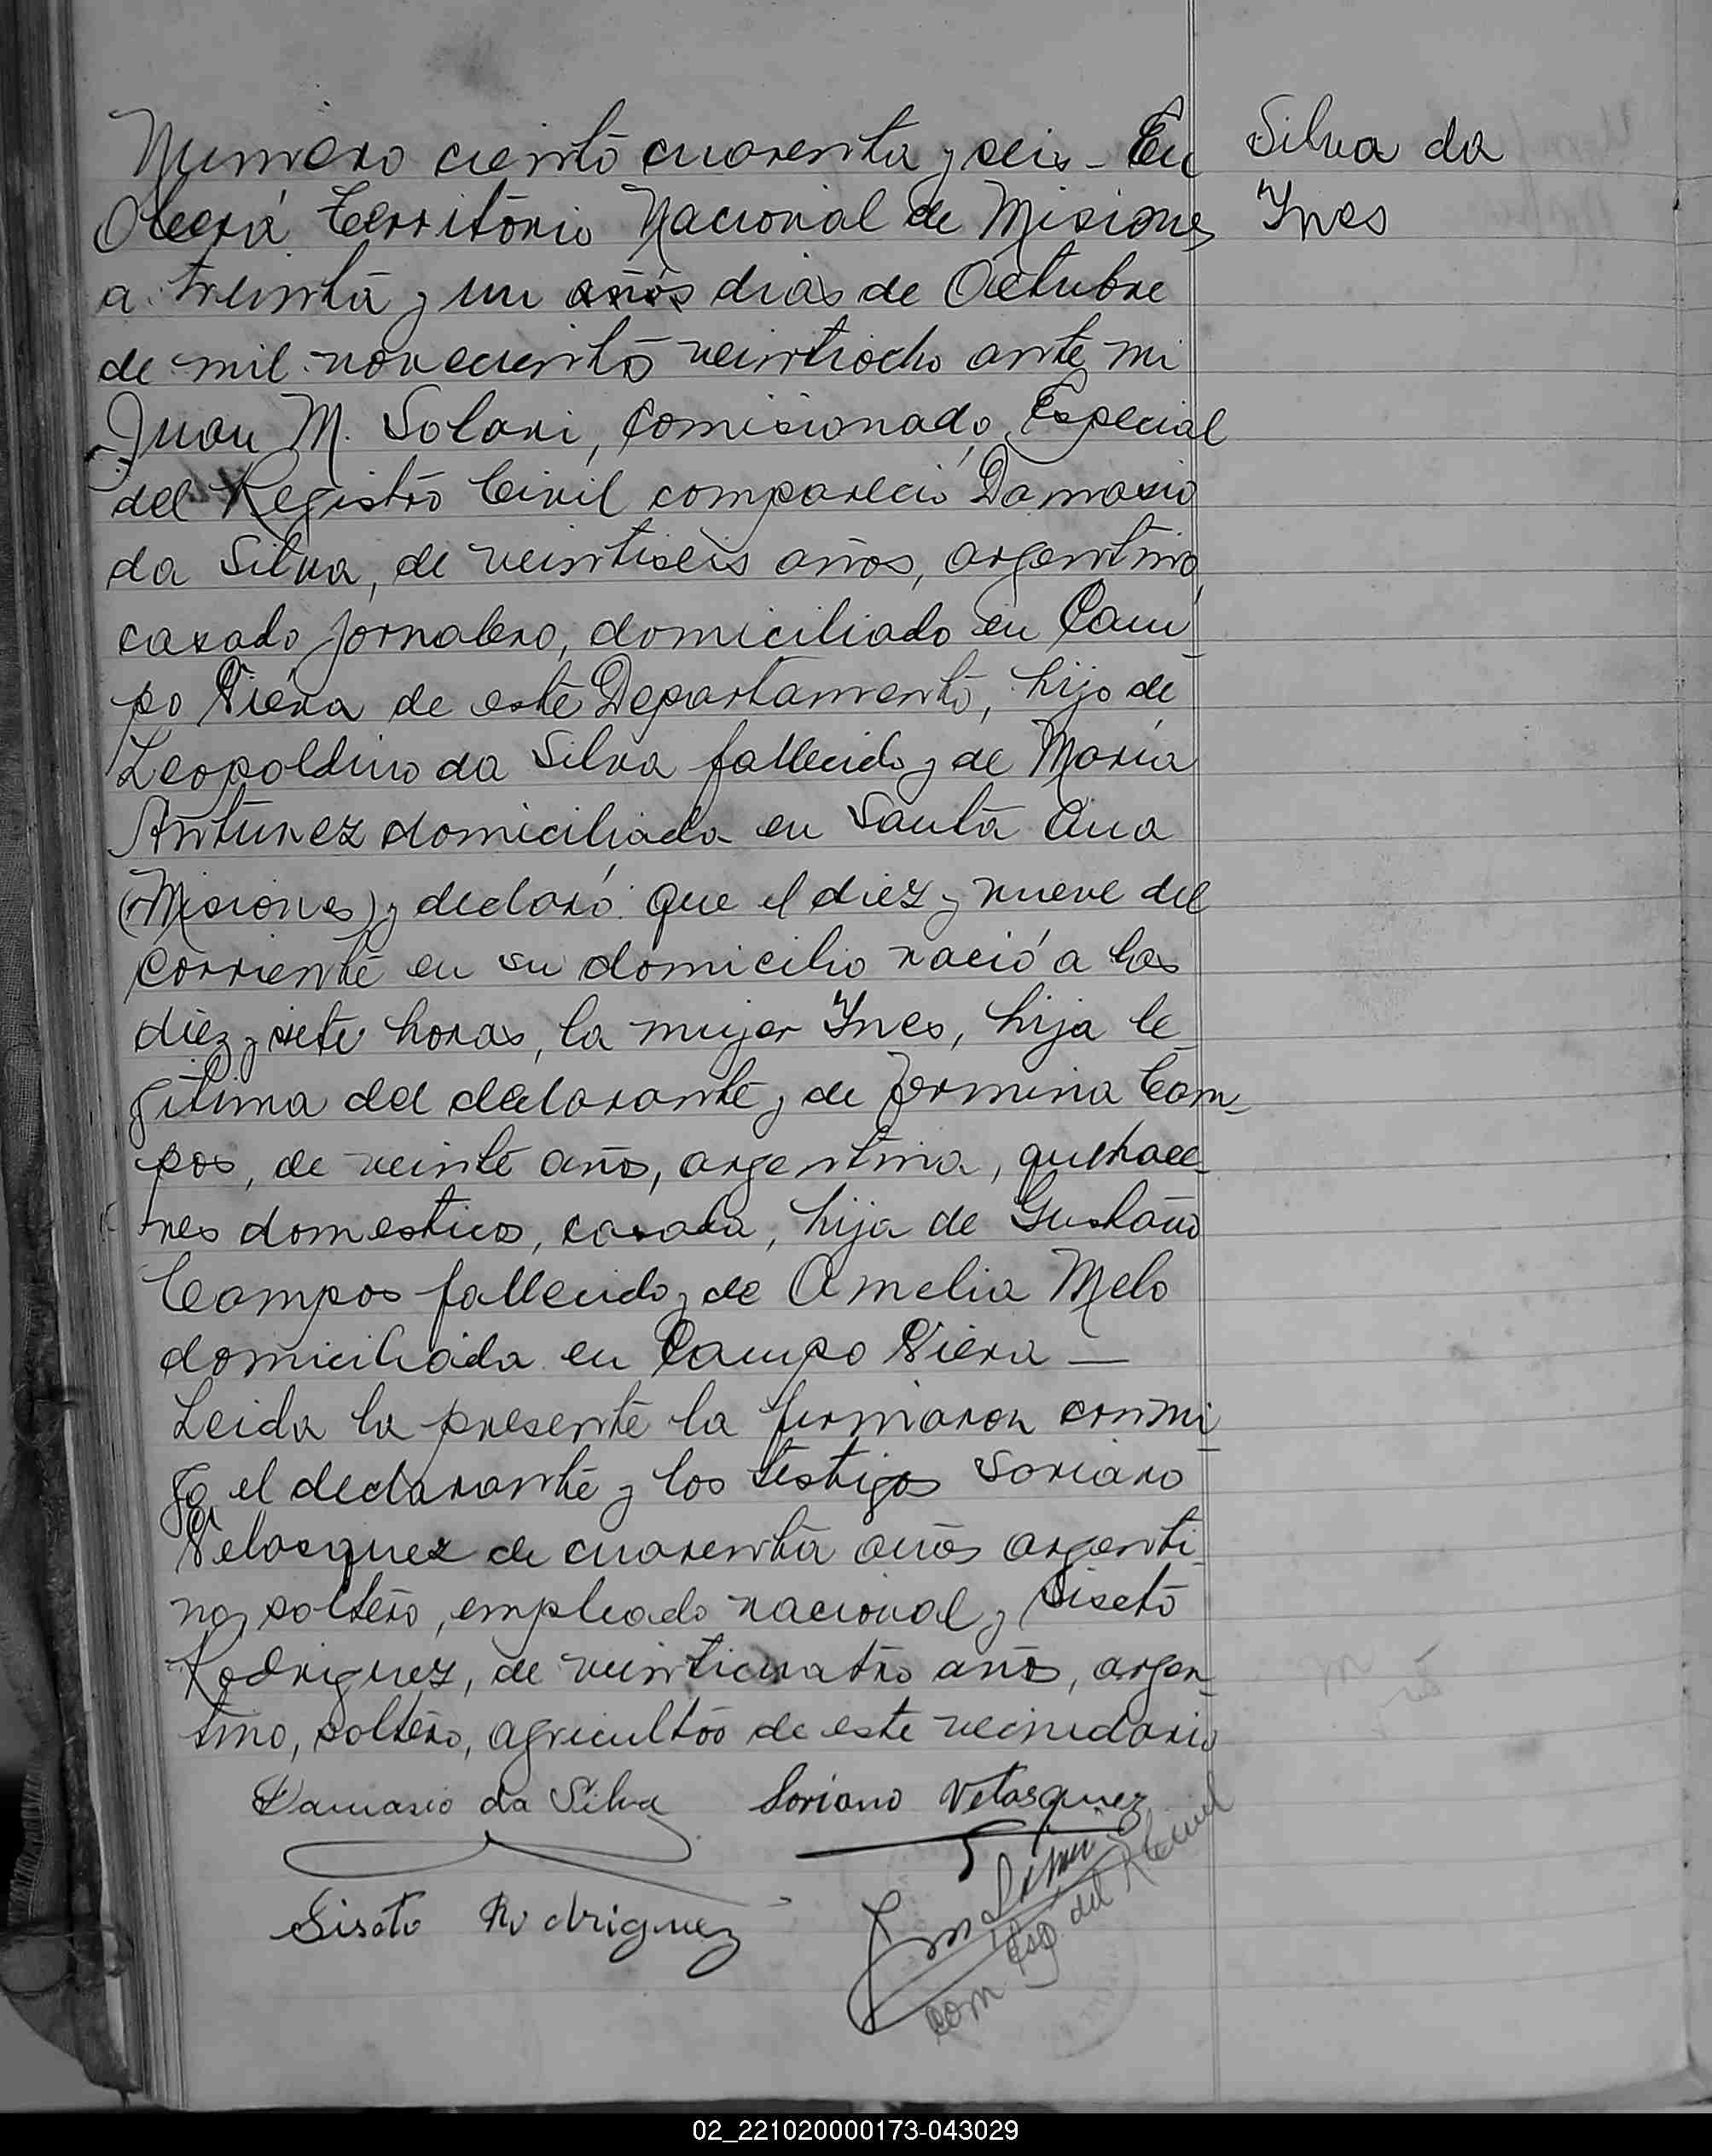 Numero ciento cuarenta y seis - En
Oberá Territorio Nacional de Misiones
a treinta y un años dias de Octubre
de mil novecientos veintiocho ante mi
Juan M. Solari, Comisionado Especial
del Registro Civil compareció Damasio
da Silva, de veintiseis años, argentino,
casado jornalero, domiciliado en Cam-
po Viera de este Departamento, hijo de
Leopoldino da Silva fallecido y de Maria
Antunez domiciliada en Santa Ana
(Misiones) y declaró: Que el diez y nueve del
corriente en su domicilio nació a las
diez y siete horas, la mujer Ynes, hija le-
gitima del declarante y de Fermina Cam-
pos, de veinte años, argentina, quehace-
res domesticos, casada, hija de Gustavo
Campos fallecido y de Amelia Melo
domiciliada en Campo Viera —
Leida la presente la firmaron conmi-
go el declarante y los testigos Soriano
Velasquez de cuarenta años argenti-
no, soltero, empleado nacional y Siseto
Rodriguez, de veinticuatro años, argen-
tino, soltero, agricultor de este vecindario
Damasio da Silva Soriano Velasquez
Siseto Rodriguez
Com Esp. del R Civil
Silva da
Ynes
02_221020000173-043029